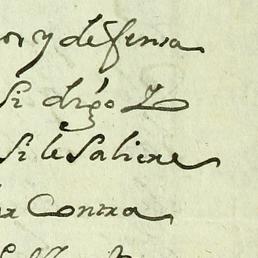 or y defensa
Si digo
Si le Saliere
Contra